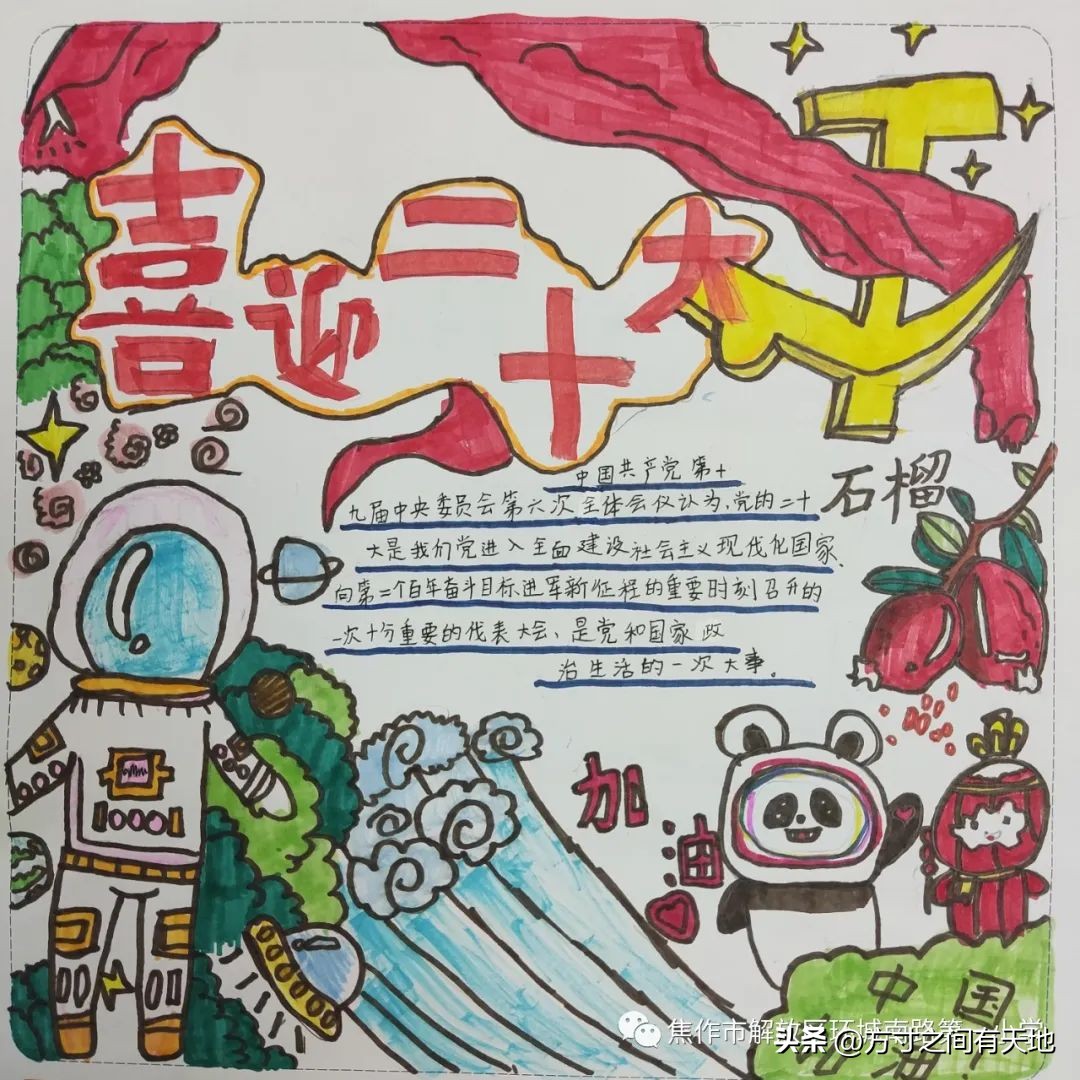 喜迎二十大
中国共产党第十
九届中央委员会第六次全体会仪认为,党的二十
大是我们党进入全面建设社会主义现代化国家、
向第二个百年奋斗目标进军新征程的重要时刻召开的
一次十分重要的代表大会、是党和国家政
治生活的一次大事。
石榴
加油
中国
焦作市解放区环城南路第
头条 @方寸之间有天地